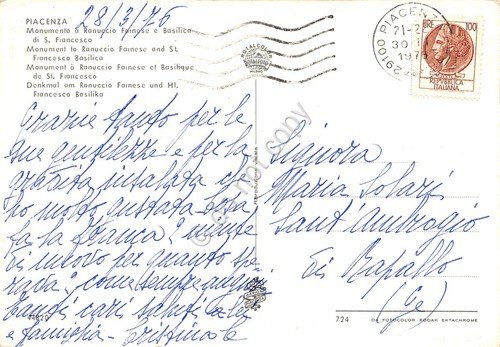 28/3/76
PIACENZA
Monumento a Ranuccio Farnese e Basilica
di S. Francesco
Monument to Ranuccio Farnese and St.
Francesco Basilica
Monument à Ranuccio Farnese et Basilique
de St. Francesco
Denkmal am Ranuccio Farnese und Hl.
Francesco Basilika
Grazie tanto per le
sue gentilezze e per la
gradita insalata che
ho molto gustata
fa la Bianca: niente
di nuovo per quanto
come sempre
tanti cari saluti a lei
e famiglia - Cristina
29100 PIACENZA
21-2
30
197
LIRE 100
REPUBBLICA
ITALIANA
Signora
Maria Solari
Sant'Ambrogio
di Rapallo
(Ge)
44820
724
DA FOTOCOLOR KODAK EKTACHROME
do not copy